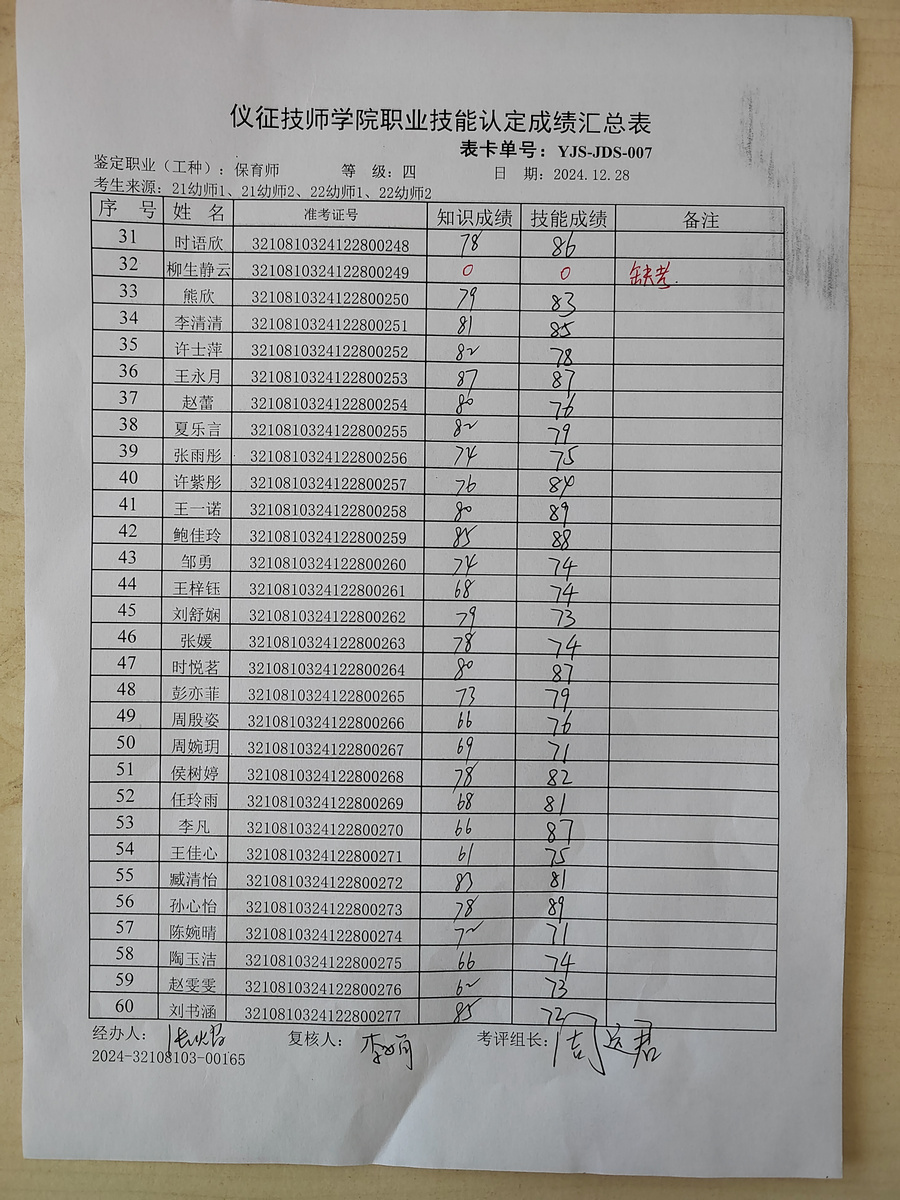 仪征技师学院职业技能认定成绩汇总表
表卡单号：YJS-JDS-007
鉴定职业（工种）：保育师 等 级：四 日 期：2024.12.28
考生来源：21幼师1、21幼师2、22幼师1、22幼师2
序 号 姓 名 准考证号 知识成绩 技能成绩 备注
31 时语欣 3210810324122800248 78 86
32 柳生静云 3210810324122800249 0 0 缺考.
33 熊欣 3210810324122800250 79 83
34 李清清 3210810324122800251 81 85
35 许士萍 3210810324122800252 82 78
36 王永月 3210810324122800253 87 87
37 赵蕾 3210810324122800254 80 76
38 夏乐言 3210810324122800255 82 79
39 张雨彤 3210810324122800256 74 75
40 许紫彤 3210810324122800257 76 84
41 王一诺 3210810324122800258 80 89
42 鲍佳玲 3210810324122800259 85 88
43 邹勇 3210810324122800260 74 74
44 王梓钰 3210810324122800261 68 74
45 刘舒娴 3210810324122800262 79 73
46 张媛 3210810324122800263 78 74
47 时悦茗 3210810324122800264 80 87
48 彭亦菲 3210810324122800265 73 79
49 周殷姿 3210810324122800266 66 76
50 周婉玥 3210810324122800267 69 71
51 侯树婷 3210810324122800268 78 82
52 任玲雨 3210810324122800269 68 81
53 李凡 3210810324122800270 66 87
54 王佳心 3210810324122800271 61 75
55 臧清怡 3210810324122800272 83 81
56 孙心怡 3210810324122800273 78 89
57 陈婉晴 3210810324122800274 72 71
58 陶玉洁 3210810324122800275 66 74
59 赵雯雯 3210810324122800276 62 73
60 刘书涵 3210810324122800277 85 72
经办人： 复核人： 考评组长：
2024-32108103-00165